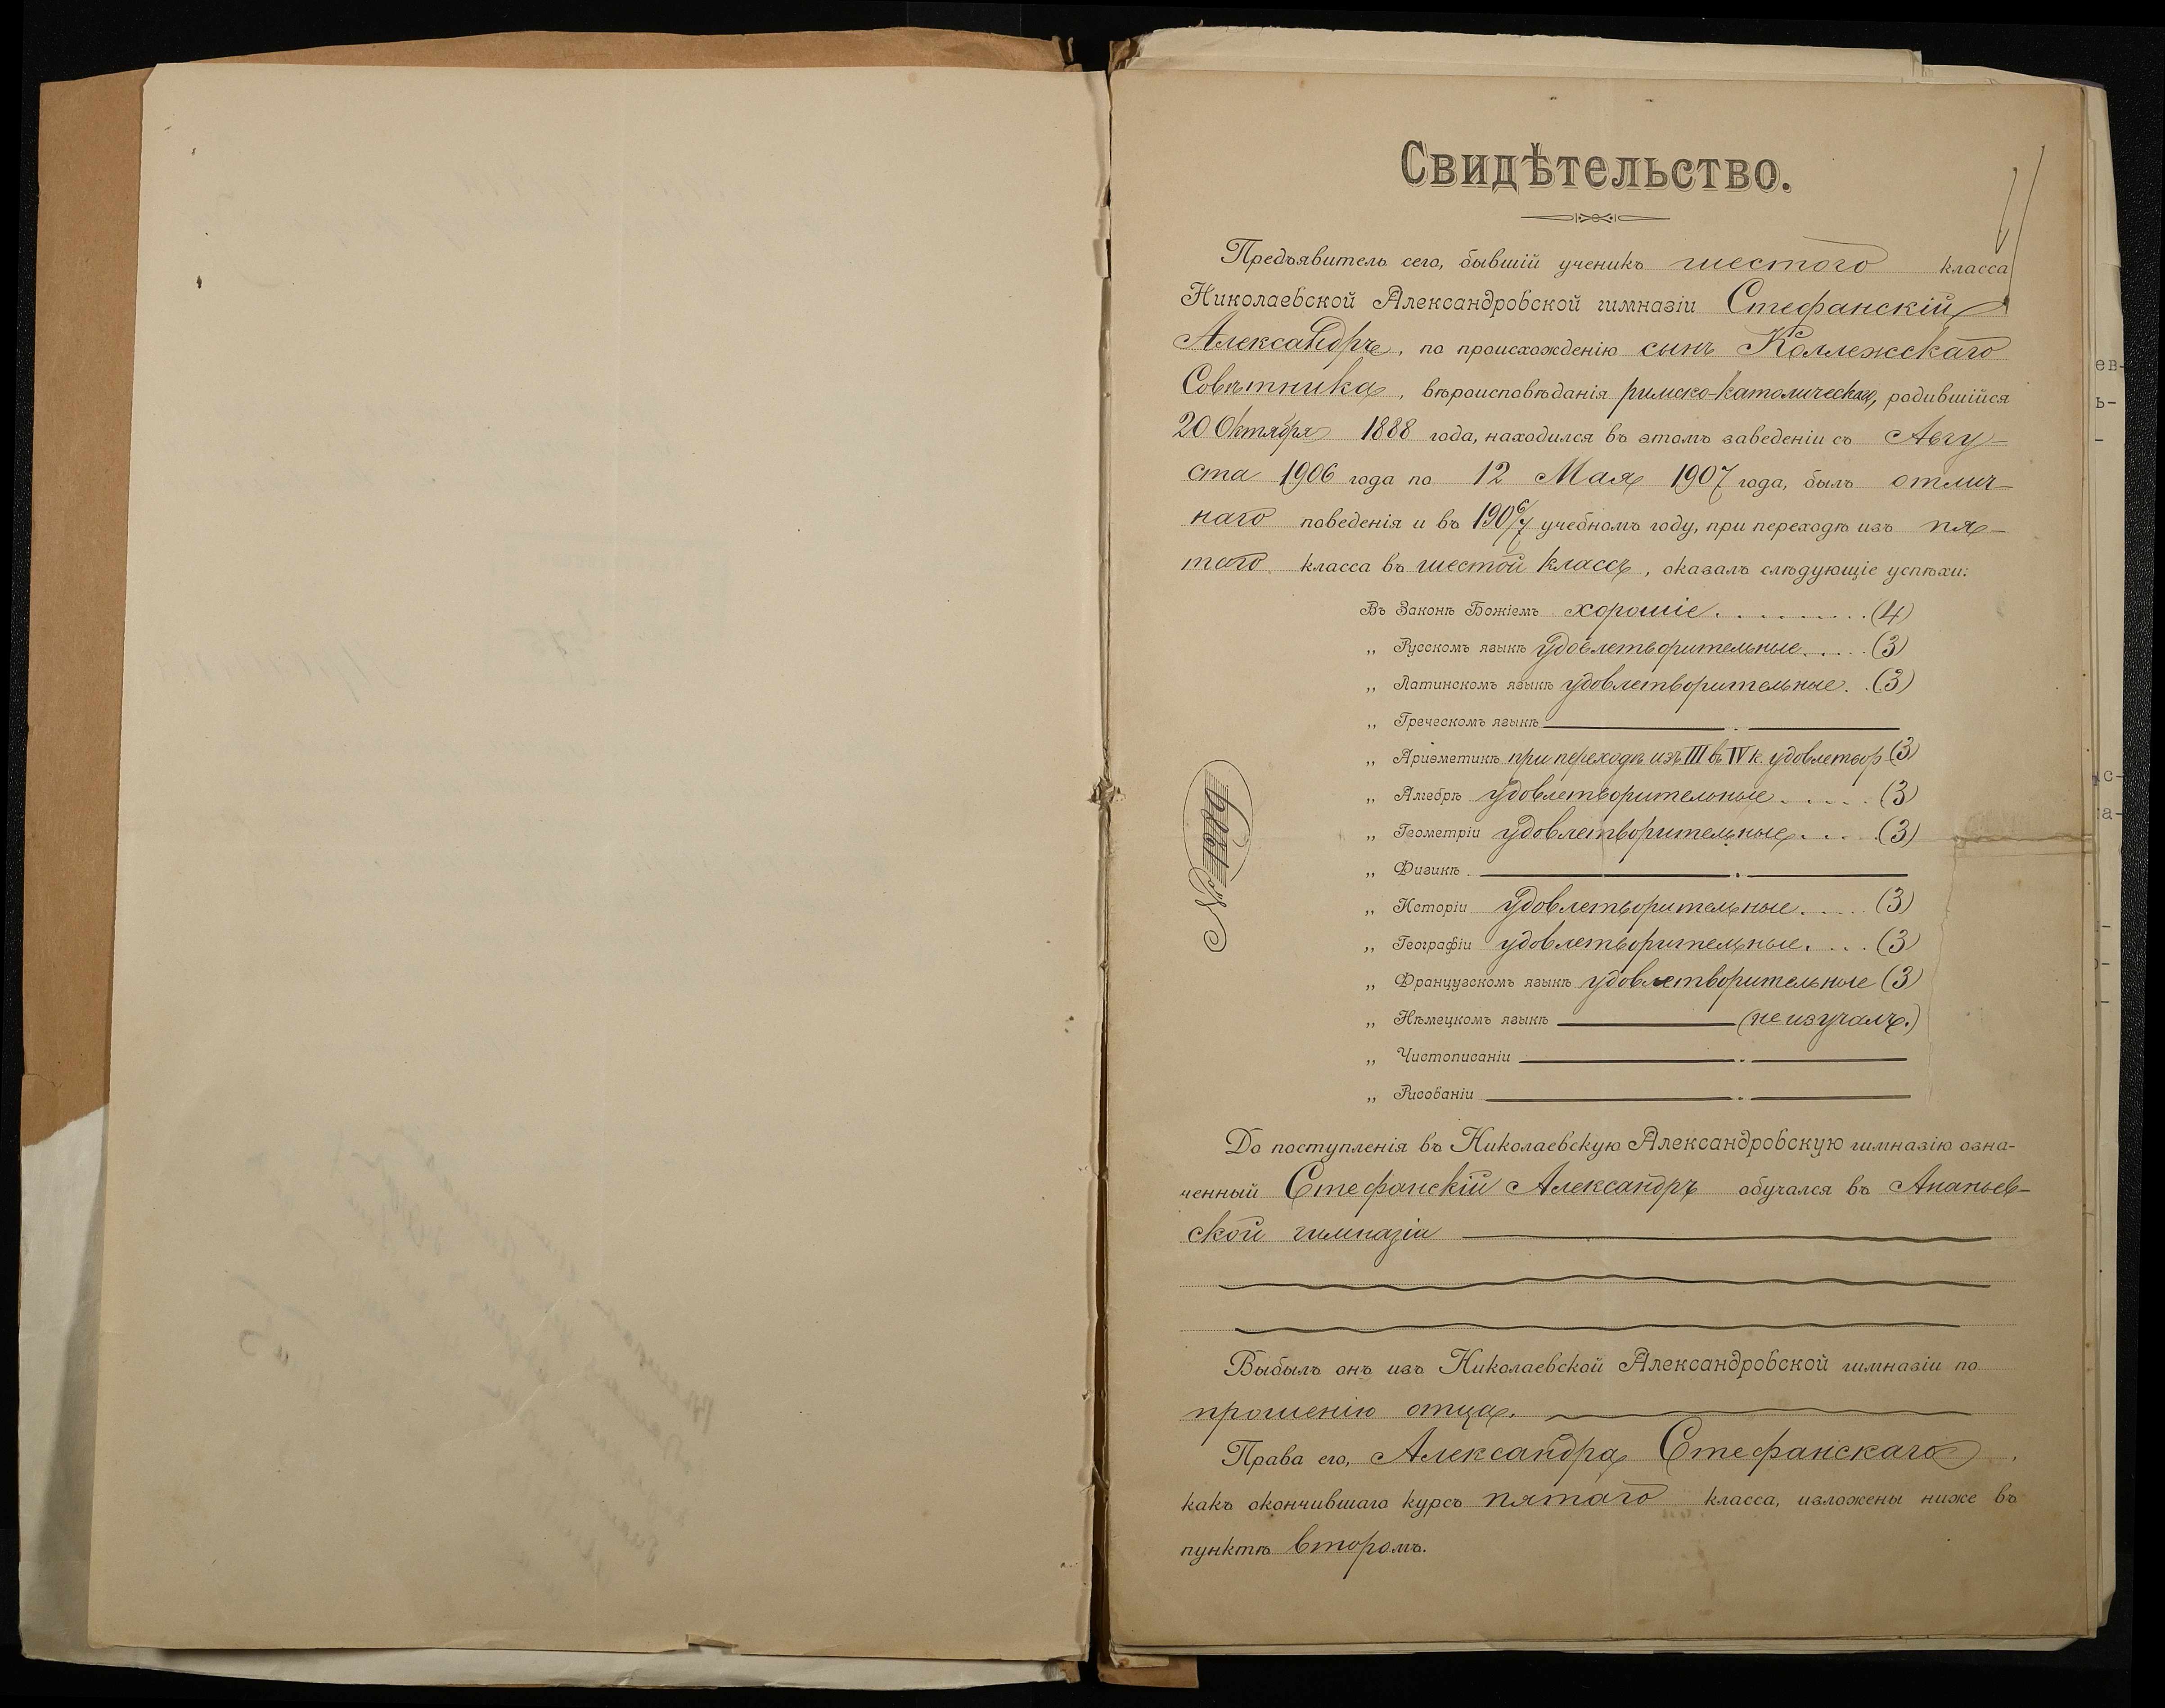 Свидѣтельство.
Предъявитель сего, бывшій ученикъ шестого класса
Николаевской Александровской гимназіи Стефанскій
Александръ, по происхожденію сынъ Коллежскаго
Совѣтника, вѣроисповѣданія римско-католическаго, родившійся
20 Октября 1888 года, находился въ этомъ заведеніи съ Авгу-
ста 1906 года по 12 Мая 1907 года, былъ отлич-
наго поведенія и въ 1906/7 учебномъ году, при переходѣ изъ пя-
таго класса въ шестой классъ, оказалъ слѣдующіе успѣхи:
Въ Законѣ Божіемъ хорошіе . . . . . . . . . . (4)
„ Русскомъ языкѣ удовлетворительные . . . . . (3)
„ Латинскомъ языкѣ удовлетворительные . . (3)
„ Греческомъ языкѣ
„ Ариѳметикѣ при переходѣ изъ III въ IV к. удовлетвор (3)
„ Алгебрѣ удовлетворительные . . . . . (3)
„ Геометріи удовлетворительные . . . . (3)
„ Физикѣ
„ Исторіи удовлетворительные . . . . . (3)
„ Географіи удовлетворительные . . . . (3)
„ Французскомъ языкѣ удовлетворительные (3)
„ Нѣмецкомъ языкѣ (не изучалъ.)
„ Чистописаніи
„ Рисованіи
№ 1209
До поступленія въ Николаевскую Александровскую гимназію озна-
ченный Стефанскій Александръ обучался въ Ананьев-
ской гимназіи
Выбылъ онъ изъ Николаевской Александровской гимназіи по
прошенію отца.
Права его, Александра Стефанскаго,
какъ окончившаго курсъ пятаго класса, изложены ниже въ
пунктѣ второмъ.